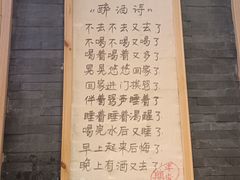 “醉酒诗”
不去不去又去了
不喝不喝又喝了
喝着喝着又多了
晃晃悠悠回家了
回家进门挨骂了
伴着骂声睡着了
睡着睡着渴醒了
喝完水后又睡了
早上起来后悔了
晚上有酒又去了